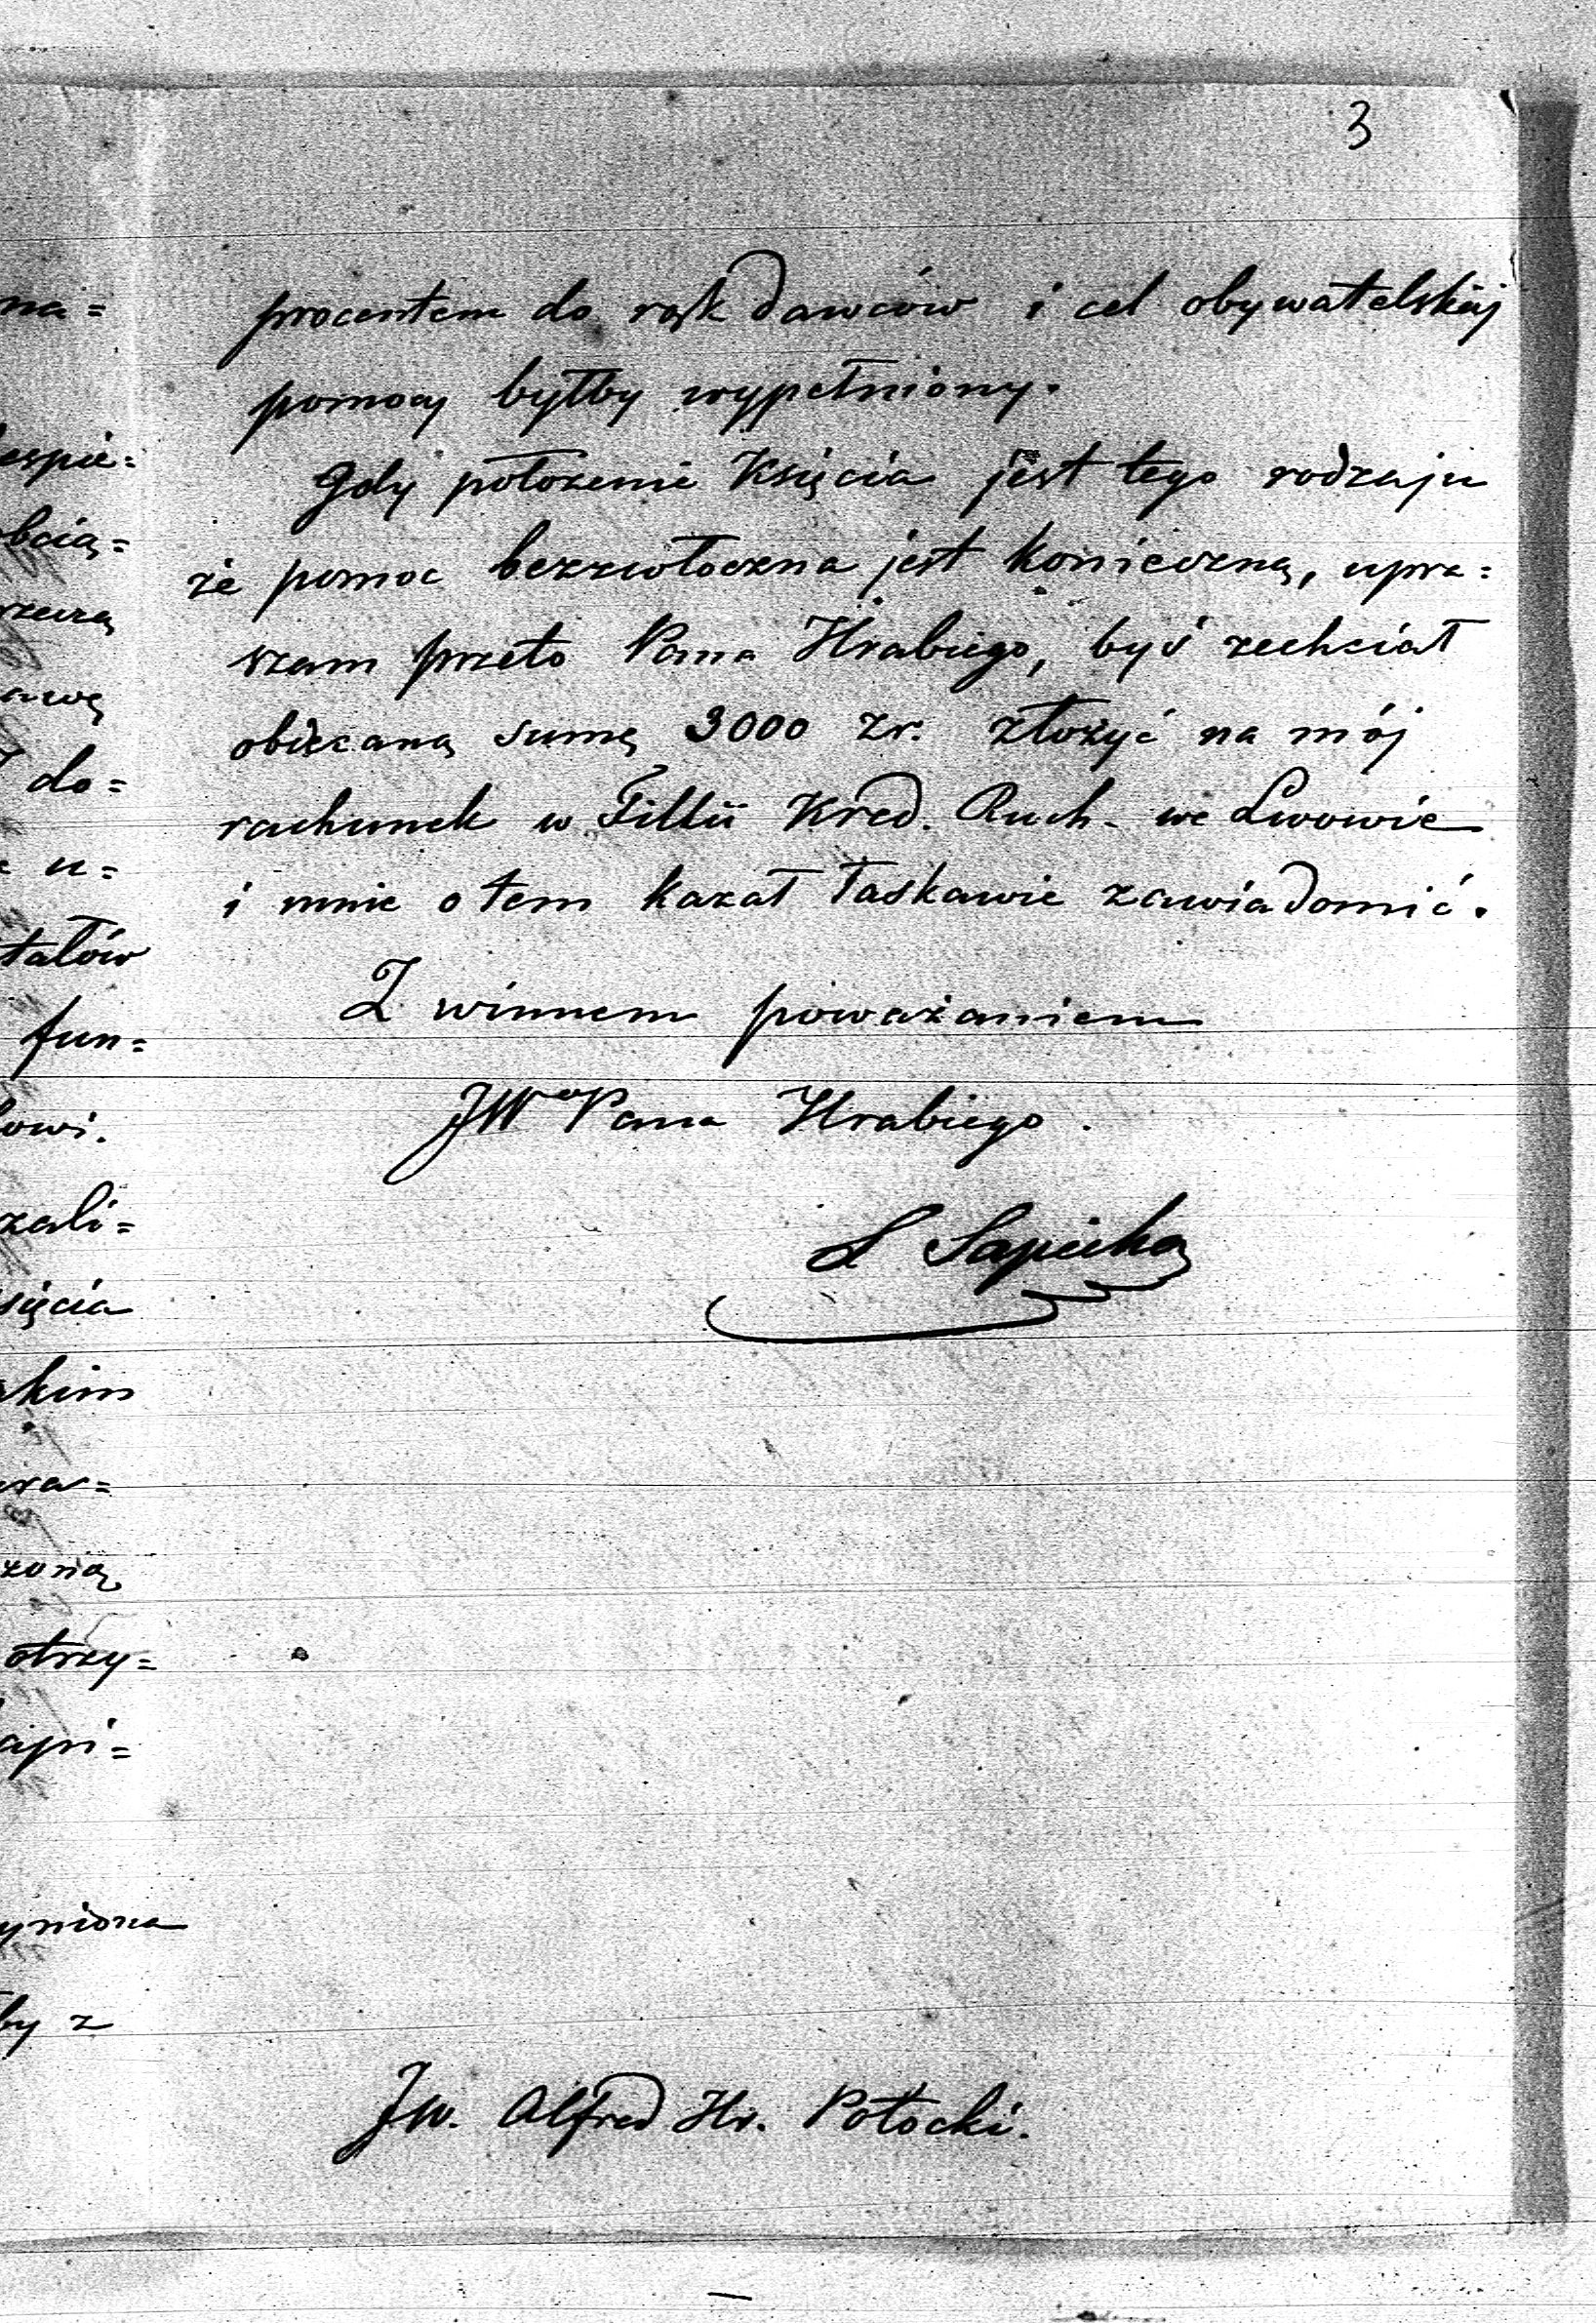 3
na=
espie=
obcią=
rzewą
awę
do=
u=
tałów
fun=
owi.
zali=
sięcia
skim
wra=
żoną
otrzy=
api=
yniona
by z
procentem do rąk dawców i cel obywatelskiéj
pomocy byłby wypełniony.
Gdy położenie Księcia jest tego rodzaju
że pomoc bezzwłoczna jest konieczną, upra=
szam przeto Pana Hrabiego, byś zechciał
obiecaną sumę 3000 zr. złożyć na mój
rachunek w Filii Kred. Ruch. we Lwowie
i mnie o tem kazał łaskawie zawiadomić.
Z winnem poważaniem
JWgo Pana Hrabiego.
L Sapieha
JW. Alfred Hr. Potocki.